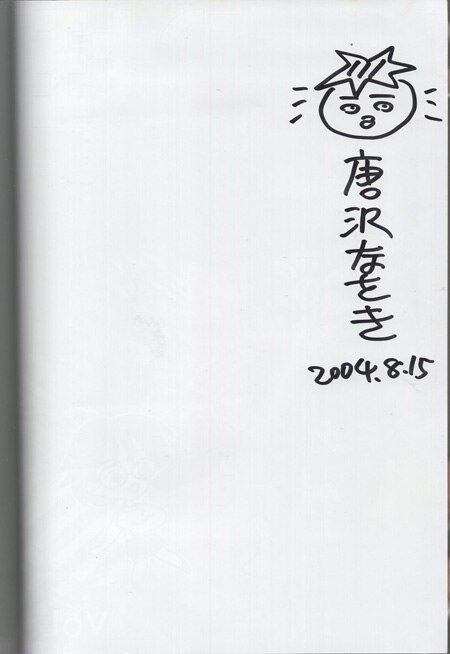 唐沢なをき
2004.8.15